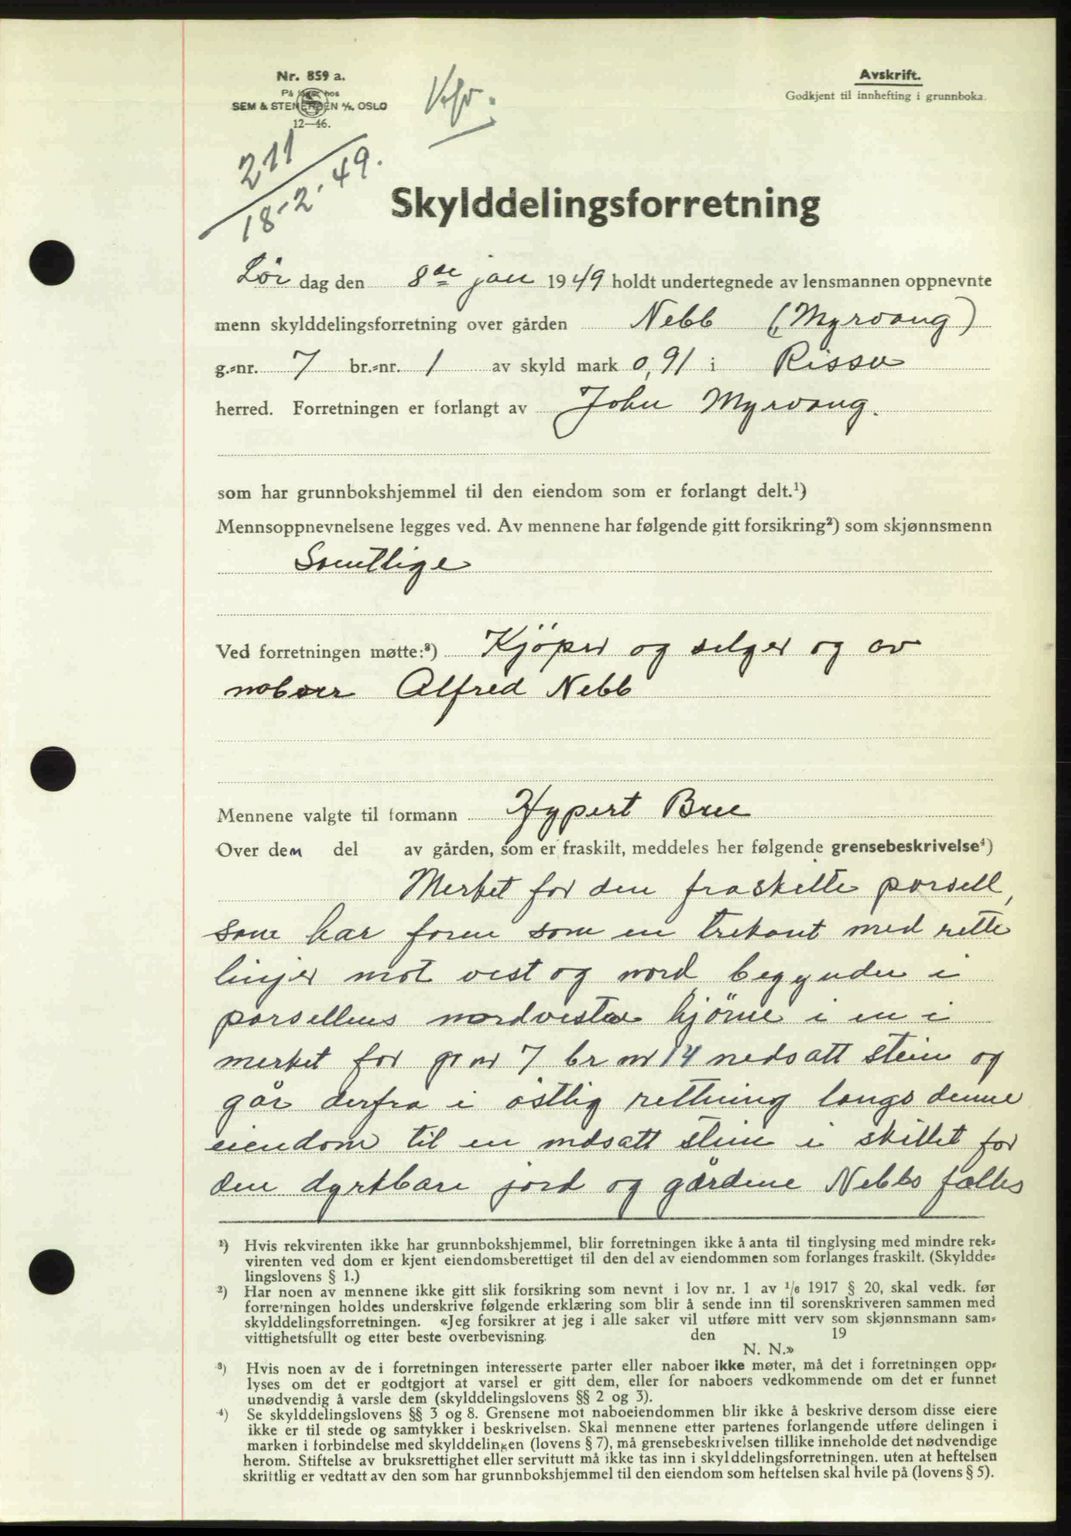 Nr. 859 a.
På lager hos
SEM & STENERSEN A/S, OSLO
12—46.
Avskrift.
Godkjent til innhefting i grunnboka.
211
18-2-49.
Skylddelingsforretning
Lør dag den 8de jan 1949 holdt undertegnede av lensmannen oppnevnte
menn skylddelingsforretning over gården Nebb (Myrvang)
g.-nr. 7 br.-nr. 1 av skyld mark 0,91 i Rissa
herred. Forretningen er forlangt av John Myrvang.
som har grunnbokshjemmel til den eiendom som er forlangt delt.¹)
Mennsoppnevnelsene legges ved. Av mennene har følgende gitt forsikring²) som skjønnsmenn
Samtlige
Ved forretningen møtte:³) Kjöper og selger og av
naboer Alfred Nebb
Mennene valgte til formann Hypert Bue
Over den del av gården, som er fraskilt, meddeles her følgende grensebeskrivelse⁴)
Merket for den fraskilte parsell,
som har form som en trekant med rette
linjer mot vest og nord, begynder i
parsellens nordvestre hjörne i en i
merket for gr nr 7 br nr 14 nedsatt stein og
går derfra i östlig rettning langs denne
eiendom til en nedsatt stein i skillet for
den dyrkbare jord og gårdene Nebbs felles
¹) Hvis rekvirenten ikke har grunnbokshjemmel, blir forretningen ikke å anta til tinglysing med mindre rek-
virenten ved dom er kjent eiendomsberettiget til den del av eiendommen som forlanges fraskilt. (Skyldde-
lingslovens § 1.)
²) Har noen av mennene ikke gitt slik forsikring som nevnt i lov nr. 1 av 1/6 1917 § 20, skal vedk. før
forretningen holdes underskrive følgende erklæring som blir å sende inn til sorenskriveren sammen med
skylddelingsforretningen. «Jeg forsikrer at jeg i alle saker vil utføre mitt verv som skjønnsmann sam-
vittighetsfullt og etter beste overbevisning. den 19
N. N.»
³) Hvis noen av de i forretningen interesserte parter eller naboer ikke møter, må det i forretningen opp-
lyses om det er godtgjort at varsel er gitt dem, eller for naboers vedkommende om det er funnet
unødvendig å varsle dem (skylddelingslovens §§ 2 og 3).
⁴) Se skylddelingslovens §§ 3 og 8. Grensene mot naboeiendommen blir ikke å beskrive dersom disse eiere
ikke er til stede og samtykker i beskrivelsen. Skal mennene etter partenes forlangende utføre delingen i
marken i forbindelse med skylddelingen (lovens § 7), må grensebeskrivelsen tillike inneholde det nødvendige
herom. Stiftelse av bruksrettighet eller servitutt må ikke tas inn i skylddelingsforretningen, uten at heftelsen
skriftlig er vedtatt av den som har grunnbokshjemmel til den eiendom som heftelsen skal hvile på (lovens § 5).